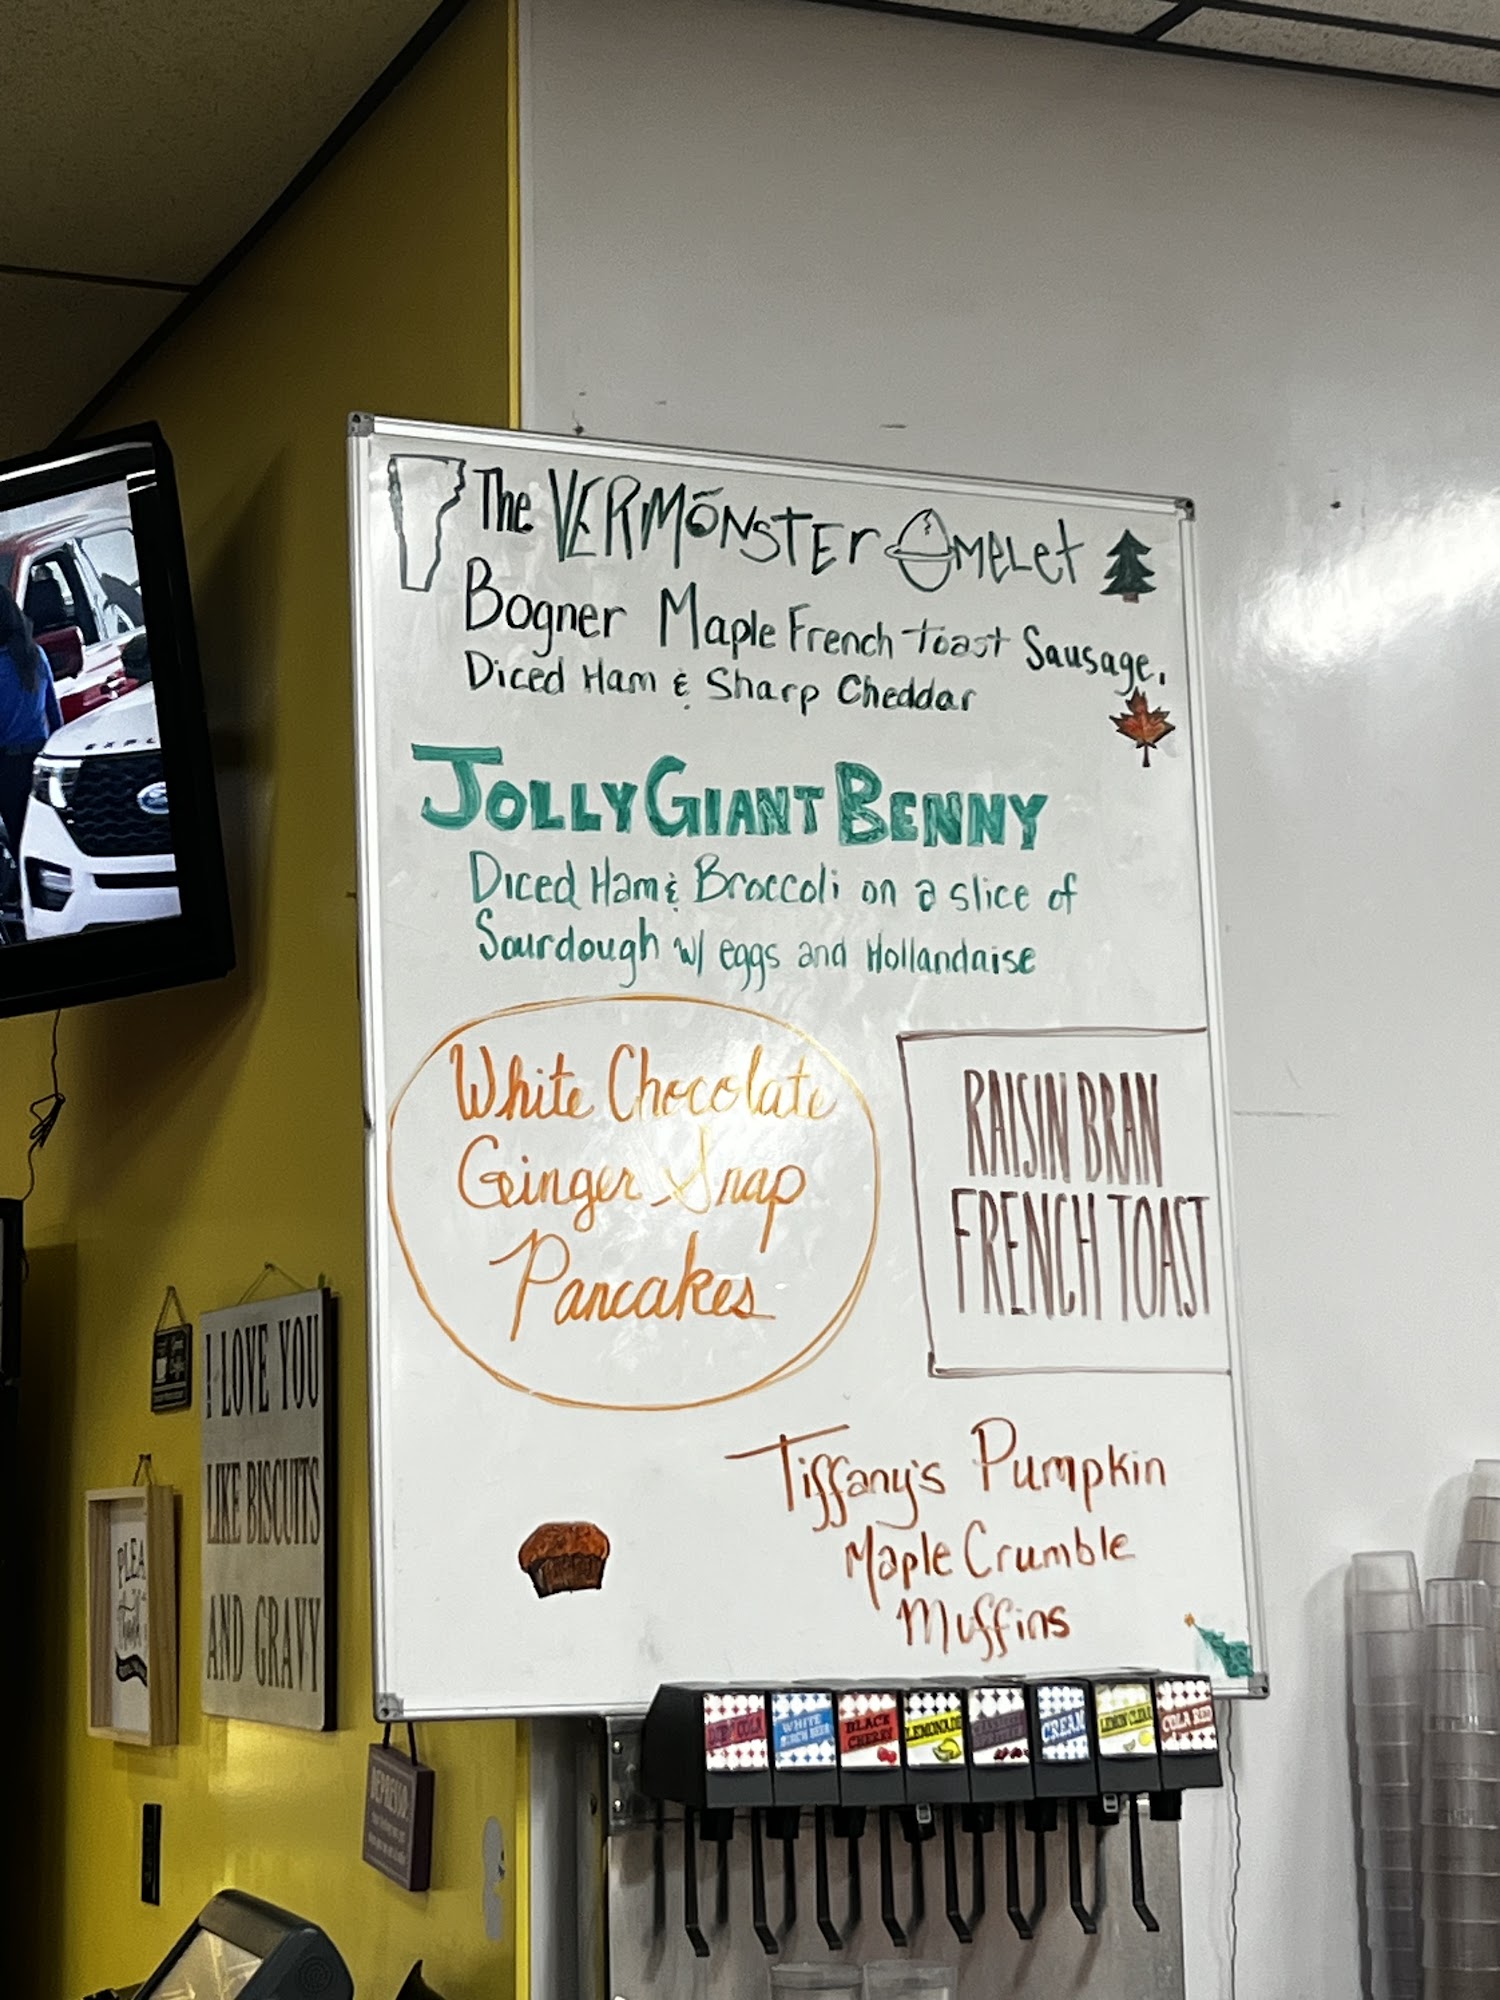 The VERMŌNSTER OMELET
Bogner Maple French toast Sausage,
Diced Ham & Sharp Cheddar
JOLLY GIANT BENNY
Diced Ham & Broccoli on a slice of
Sourdough w/ eggs and Hollandaise
White Chocolate
Ginger Snap
Pancakes
RAISIN BRAN
FRENCH TOAST
Tiffany's Pumpkin
Maple Crumble
Muffins
I LOVE YOU
LIKE BISCUITS
AND GRAVY
PLEA
thank
EXPL
Ford
WHITE
BIRCH BEER
BLACK
CHERRY
LEMONADE
CREAM
LEMON CLEAR
COLA RED